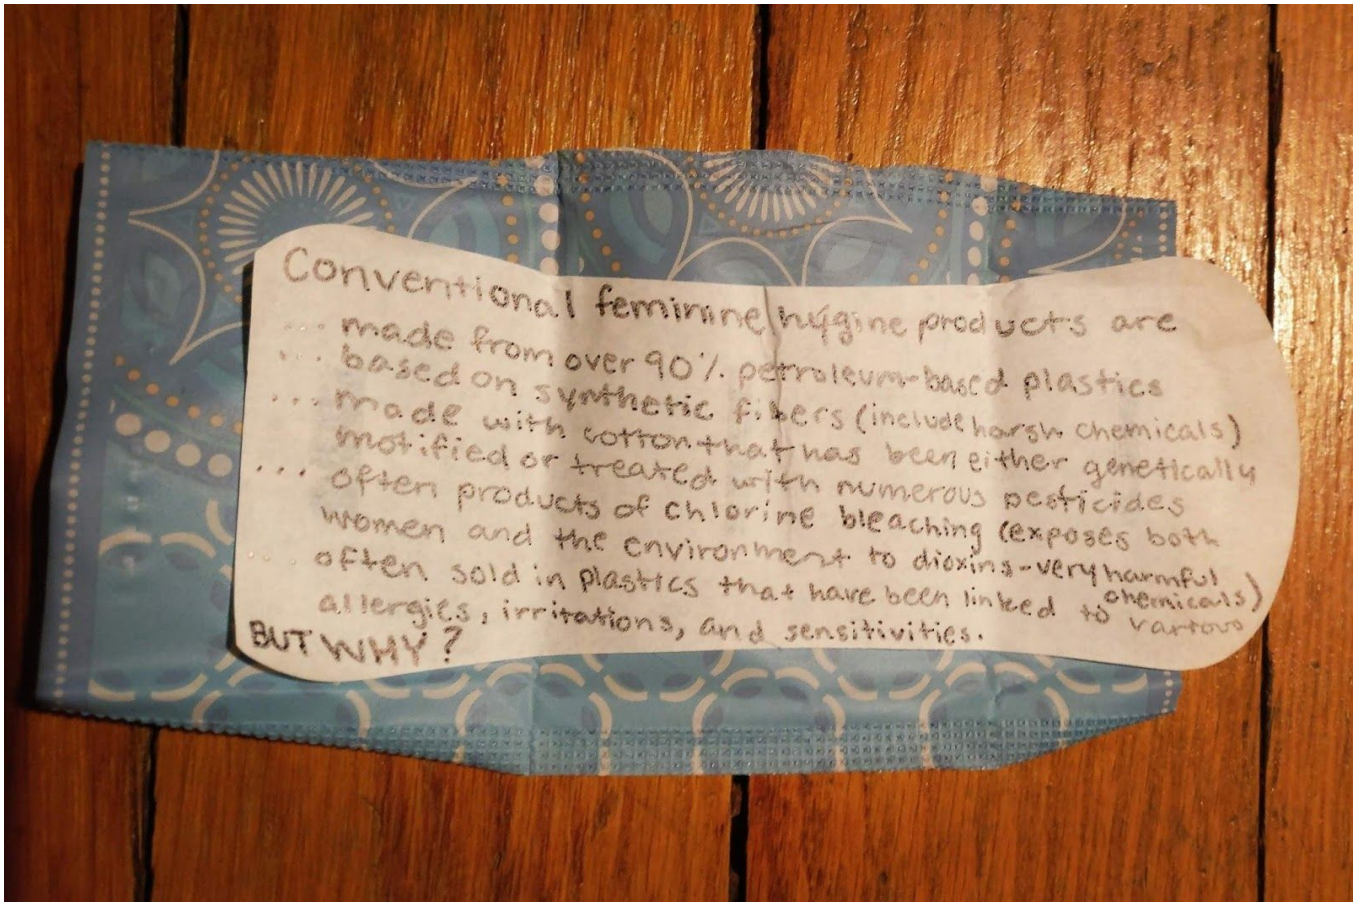 Conventional feminine hygine products are
... made from over 90% petroleum-based plastics
... based on synthetic fibers (include harsh chemicals)
... made with cotton that has been either genetically
motified or treated with numerous pesticides
... often products of chlorine bleaching (exposes both
women and the environment to dioxins-very harmful
chemicals)
... often sold in plastics that have been linked to various
allergies, irritations, and sensitivities.
BUT WHY?